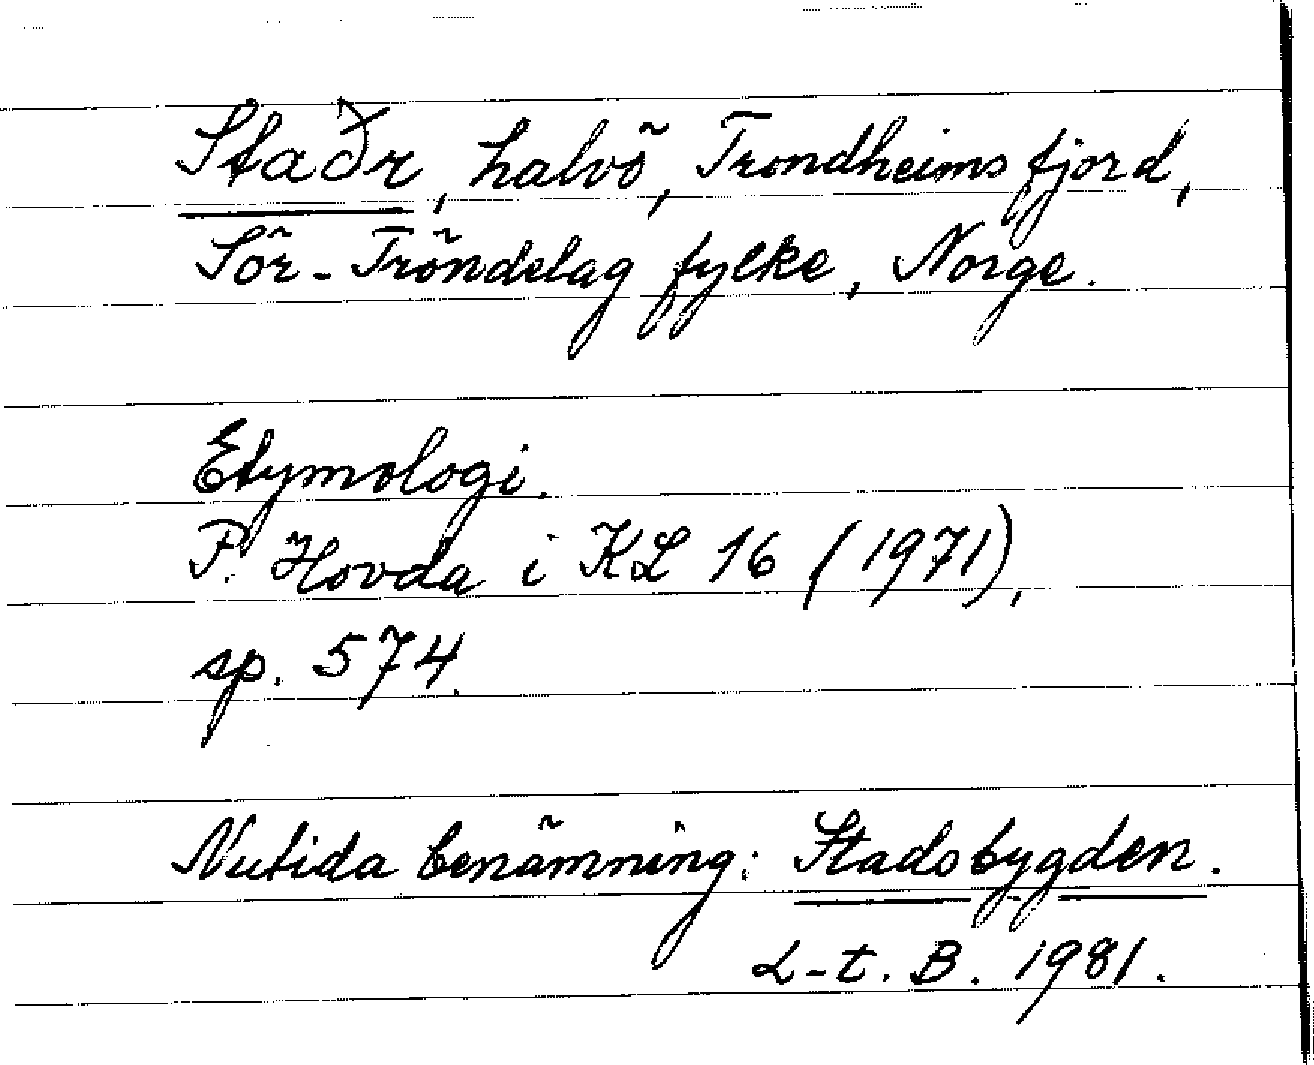 Staðr, halvö, Trondheimsfjord,
Sör-Tröndelag fylke, Norge.
Etymologi.
P. Hovda i KL 16 (1971),
sp. 574.
Nutida benämning: Stadsbygden.
L-t. B. 1981.